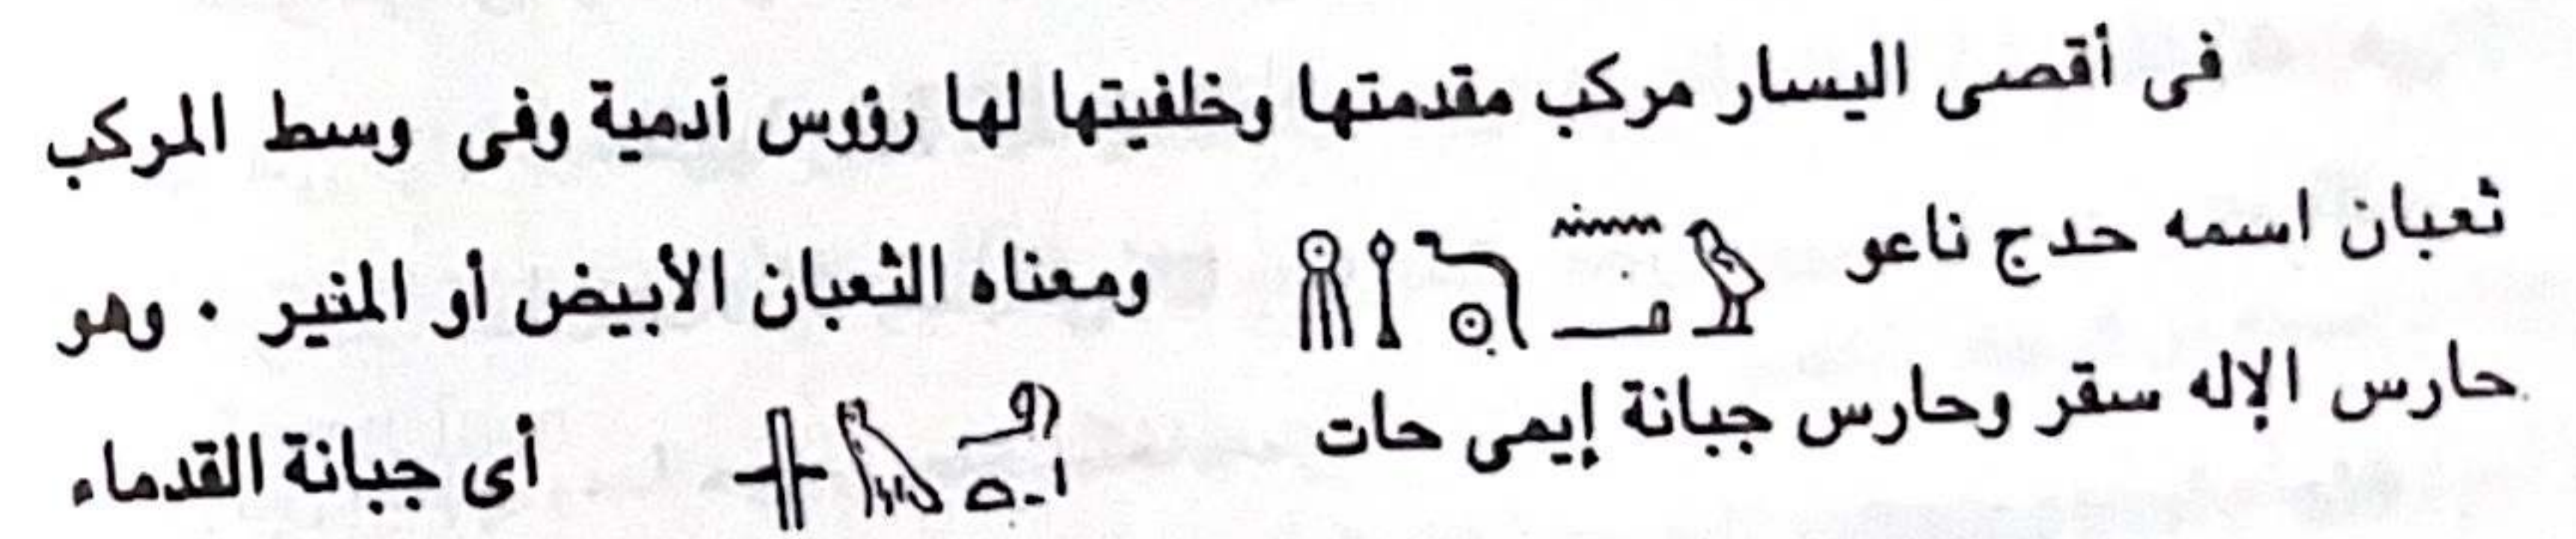 فى أقصى اليسار مركب مقدمتها وخلفيتها لها رؤوس آدمية وفى وسط المركب
ثعبان اسمه حدج ناعو ومعناه الثعبان الأبيض أو المنير . وهو
حارس الإله سقر وحارس جبانة إيمى حات أى جبانة القدماء